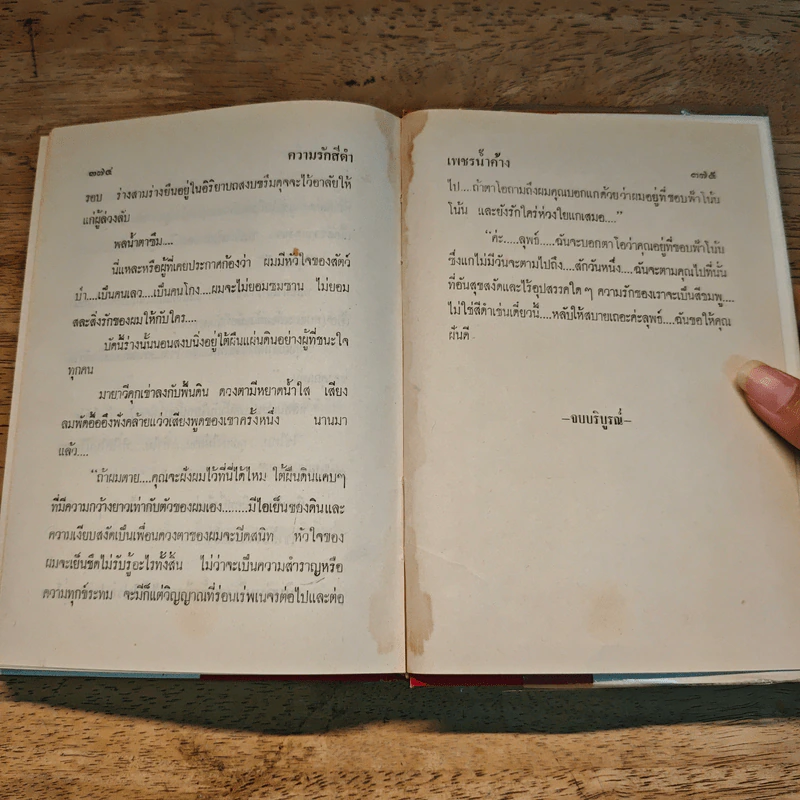 ๓๗๔
ความรักสีดำ
รอบ ร่างสามร่างยืนอยู่ในอิริยาบถสงบขรึมดุจจะไว้อาลัยให้
แก่ผู้ล่วงลับ
พลน้ำตาซึม....
นี่แหละหรือผู้ที่เคยประกาศก้องว่า ผมมีหัวใจของสัตว์
ป่า....เป็นคนเลว....เป็นคนโกง....ผมจะไม่ยอมซมซาน ไม่ยอม
สละสิ่งรักของผมให้กับใคร....
บัดนี้ร่างนั้นนอนสงบนิ่งอยู่ใต้ผืนแผ่นดินอย่างผู้ที่ชนะใจ
ทุกคน
มายาวีคุกเข่าลงกับพื้นดิน ดวงตามีหยาดน้ำใส เสียง
ลมพัดอื้ออึงฟังคล้ายแว่วเสียงพูดของเขาครั้งหนึ่ง นานมา
แล้ว....
“ถ้าผมตาย....คุณจะฝังผมไว้ที่นี่ได้ไหม ใต้ผืนดินแคบๆ
ที่มีความกว้างยาวเท่ากับตัวของผมเอง........มีไอเย็นของดินและ
ความเงียบสงัดเป็นเพื่อนดวงตาของผมจะปิดสนิท หัวใจของ
ผมจะเย็นชืดไม่รับรู้อะไรทั้งสิ้น ไม่ว่าจะเป็นความสำราญหรือ
ความทุกข์ระทม จะมีก็แต่วิญญาณที่ร่อนเร่พเนจรต่อไปและต่อ
เพชรน้ำค้าง
๓๗๕
ไป....ถ้าตาโอถามถึงผมคุณบอกแกด้วยว่าผมอยู่ที่ขอบฟ้าโน้น
โน้น และยังรักใคร่ห่วงใยแกเสมอ....”
“ค่ะ.....ลุพธ์.....ฉันจะบอกตาโอว่าคุณอยู่ที่ขอบฟ้าโน้น
ซึ่งแกไม่มีวันจะตามไปถึง....สักวันหนึ่ง....ฉันจะตามคุณไปที่นั้น
ที่อันสุขสงัดและไร้อุปสรรคใด ๆ ความรักของเราจะเป็นสีชมพู....
ไม่ใช่สีดำเช่นเดี๋ยวนี้....หลับให้สบายเถอะค่ะลุพธ์....ฉันขอให้คุณ
ฝันดี
—จบบริบูรณ์—